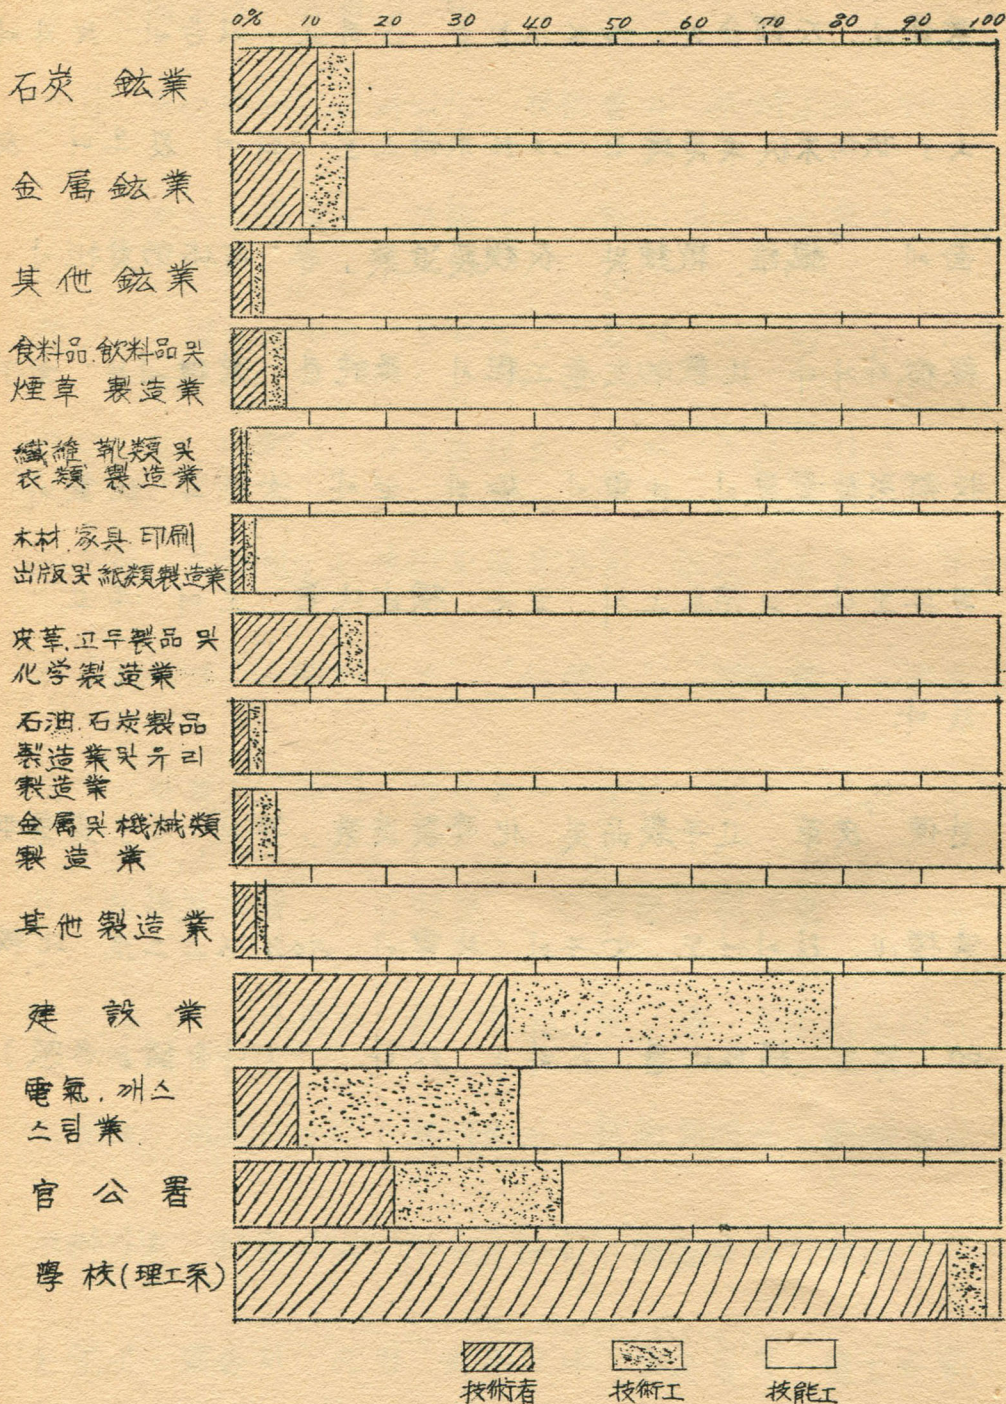 0% 10 20 30 40 50 60 70 80 90 100
石炭 鉱業
金属鉱業
其他 鉱業
食料品.飲料品및
煙草 製造業
纖維 靴類 및
衣類 製造業
木材.家具.印刷
出版및紙類製造業
皮革.고무製品 및
化学製造業
石油.石炭製品
製造業및유리
製造業
金属및機械類
製造業
其他製造業
建設業
電氣.깨스
스팀業
官公署
學校(理工系)
技術者 技術工 技能工